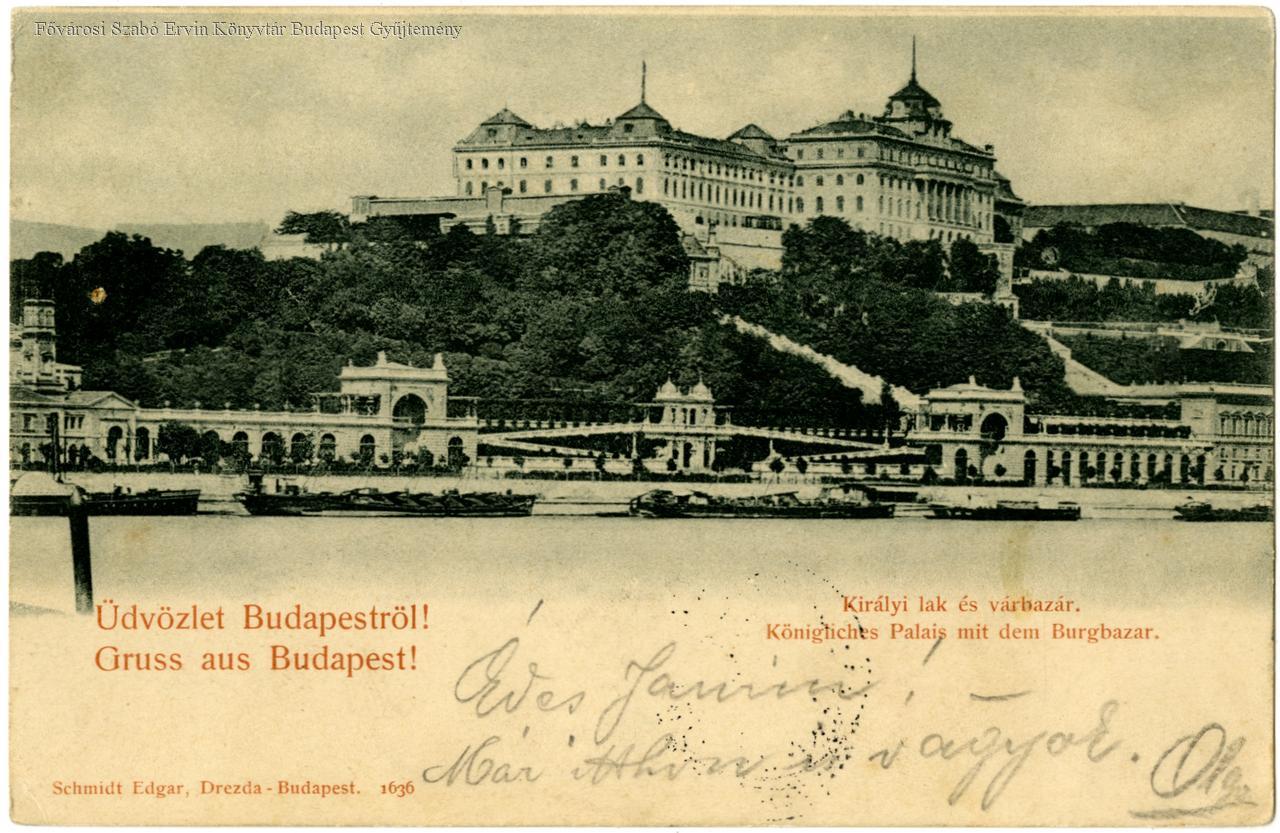 Fővárosi Szabó Ervin Könyvtár Budapest Gyűjtemény
Üdvözlet Budapeströl!
Gruss aus Budapest!
Királyi lak és várbazár.
Königliches Palais mit dem Burgbazar.
Édes
Már itthon vagyok.
Olga
Schmidt Edgar, Drezda - Budapest. 1636